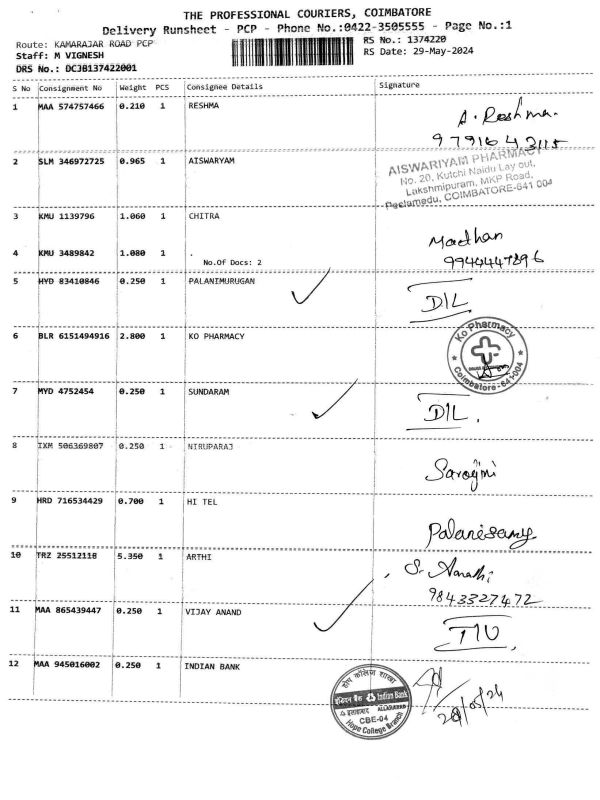 THE PROFESSIONAL COURIERS, COIMBATORE
Delivery Runsheet - PCP - Phone No.:0422-3505555 - Page No.:1
Route: KAMARAJAR ROAD PCP
RS No.: 1374220
Staff: M VIGNESH
RS Date: 29-May-2024
DRS No.: DCJB137422001
S No Consignment No Weight PCS Consignee Details Signature
1 MAA 574757466 0.210 1 RESHMA
A. Reshma.
2 SLM 346972725 0.965 1 AISWARYAM
AISWARIYAM PHARMACY
No. 20, Kutchi Naidu Lay out,
Lakshmipuram, MKP Road,
Peelamedu, COIMBATORE-641 004
3 KMU 1139796 1.060 1 CHITRA
Madhan
4 KMU 3489842 1.080 1 .
No.Of Docs: 2
9940447896
5 HYD 83410846 0.250 1 PALANIMURUGAN
D/L
6 BLR 6151494916 2.800 1 KO PHARMACY
Ko Pharmacy
Coimbatore-641 004
7 MYD 4752454 0.250 1 SUNDARAM
D/L.
8 IXM 506369807 0.250 1 NIRUPARAJ
Sarojini
9 HRD 716534429 0.700 1 HI TEL
Palanisamy
10 TRZ 25512118 5.350 1 ARTHI
S. Aarathi
9843327472
11 MAA 865439447 0.250 1 VIJAY ANAND
12 MAA 945016002 0.250 1 INDIAN BANK
होप कॉलेज शाखा
इंडियन बैंक Indian Bank
इलाहाबाद ALLAHABAD
CBE-04
Hope College Branch
29/05/24